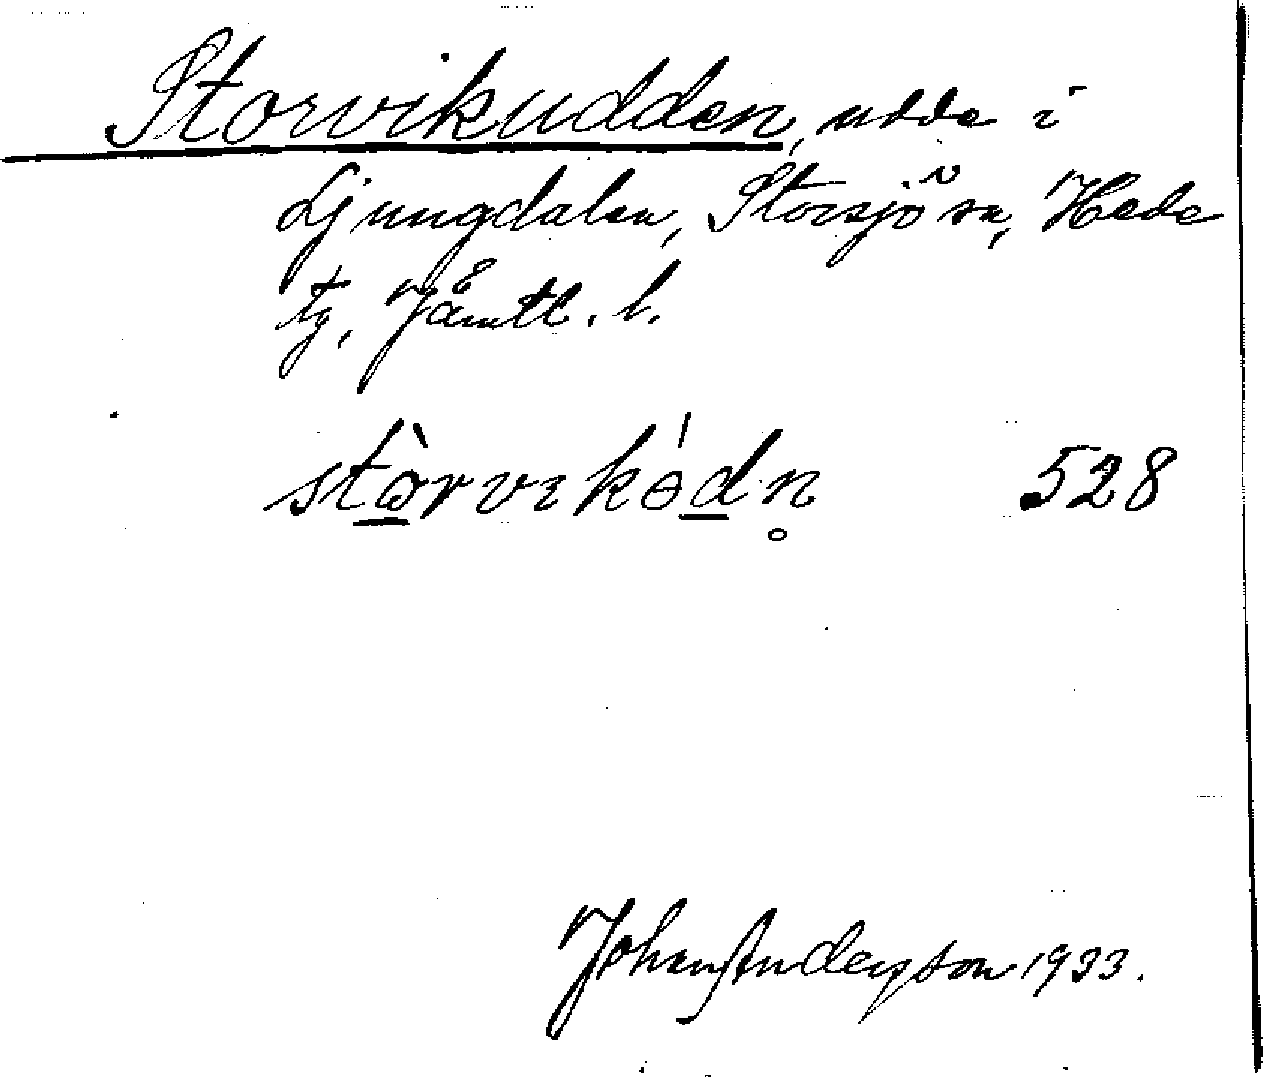 Storvikudden, udde i
Ljungdalen, Storsjö sn, Hede
tg, Jämtl. l.
stòrvikɵ́dn̥ 528
Johan Andersson 1933.